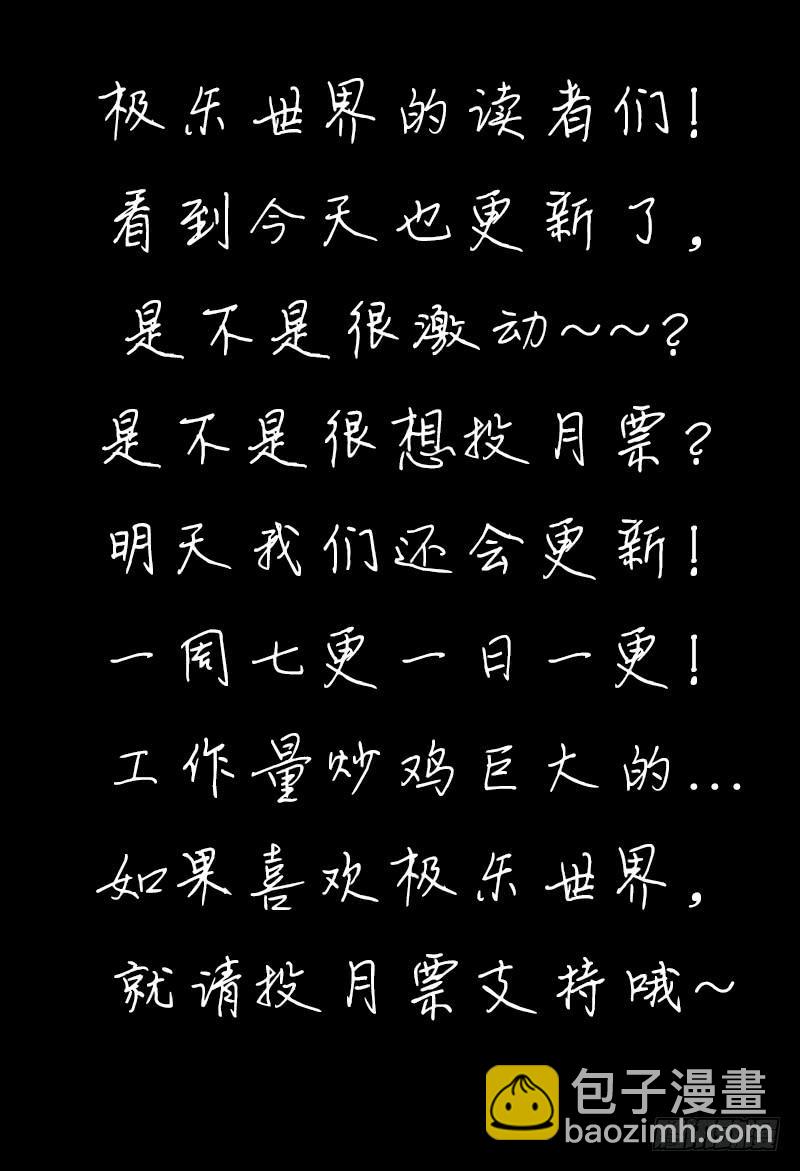 极乐世界的读者们!
看到今天也更新了,
是不是很激动~~?
是不是很想投月票?
明天我们还会更新!
一周七更一日一更!
工作量炒鸡巨大的...
如果喜欢极乐世界,
就请投月票支持哦~
包子漫畫
baozimh.com